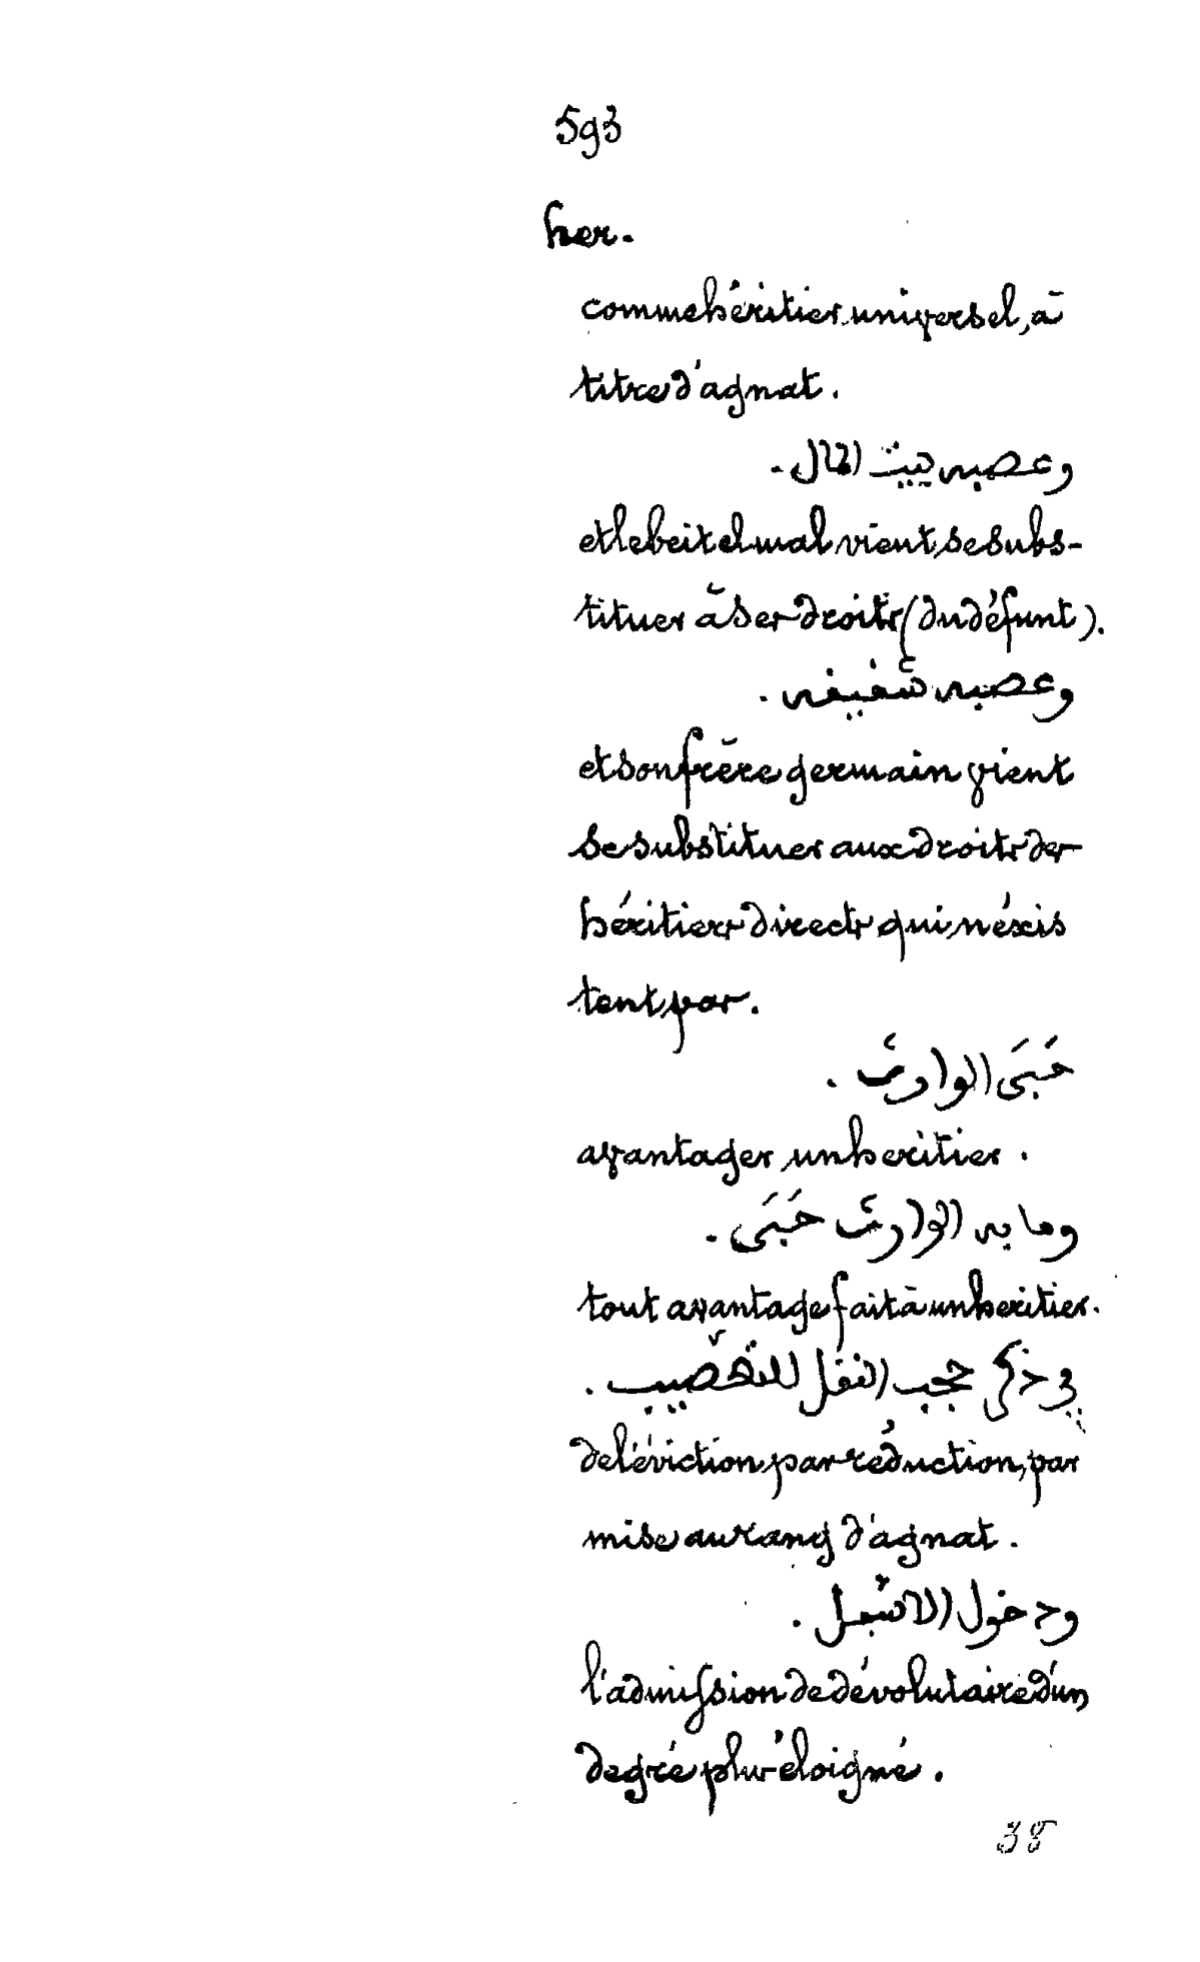 593
her.
comme héritier universel, à
titre d'agnat.
وعصبه بيت المال.
et le beit el mal vient se subs-
tituer à ses droits (du défunt).
وعصبه شفيفه.
et son frère germain vient
se substituer aux droits des
héritiers directs qui n'éxis
tent pas.
حَبَىَ الوارث.
avantager un heritier.
وما به الوارث حَبَىَ.
tout avantage fait à un heritier.
حجب النفل للتعصيب.
de l'éviction par réduction, par
mise au rang d'agnat.
ودخول الاسبل.
l'admission de dévolutaire d'un
degré plus éloigné.
38